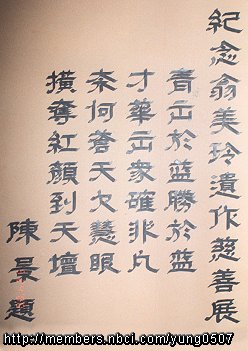 紀念翁美玲遺作慈善展
青出於藍勝於藍
才華出眾確非凡
奈何蒼天欠慧眼
橫奪紅顏到天壇
陳景題
http://members.nbci.com/yung0507